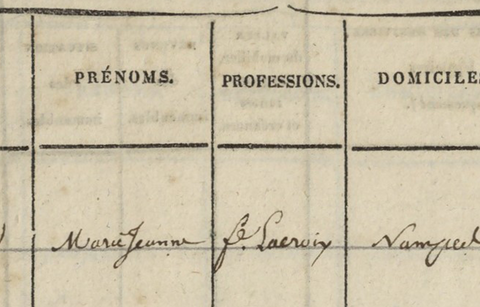 PRÉNOMS. PROFESSIONS. DOMICILE
Marie Jeanne fe. Lacroix